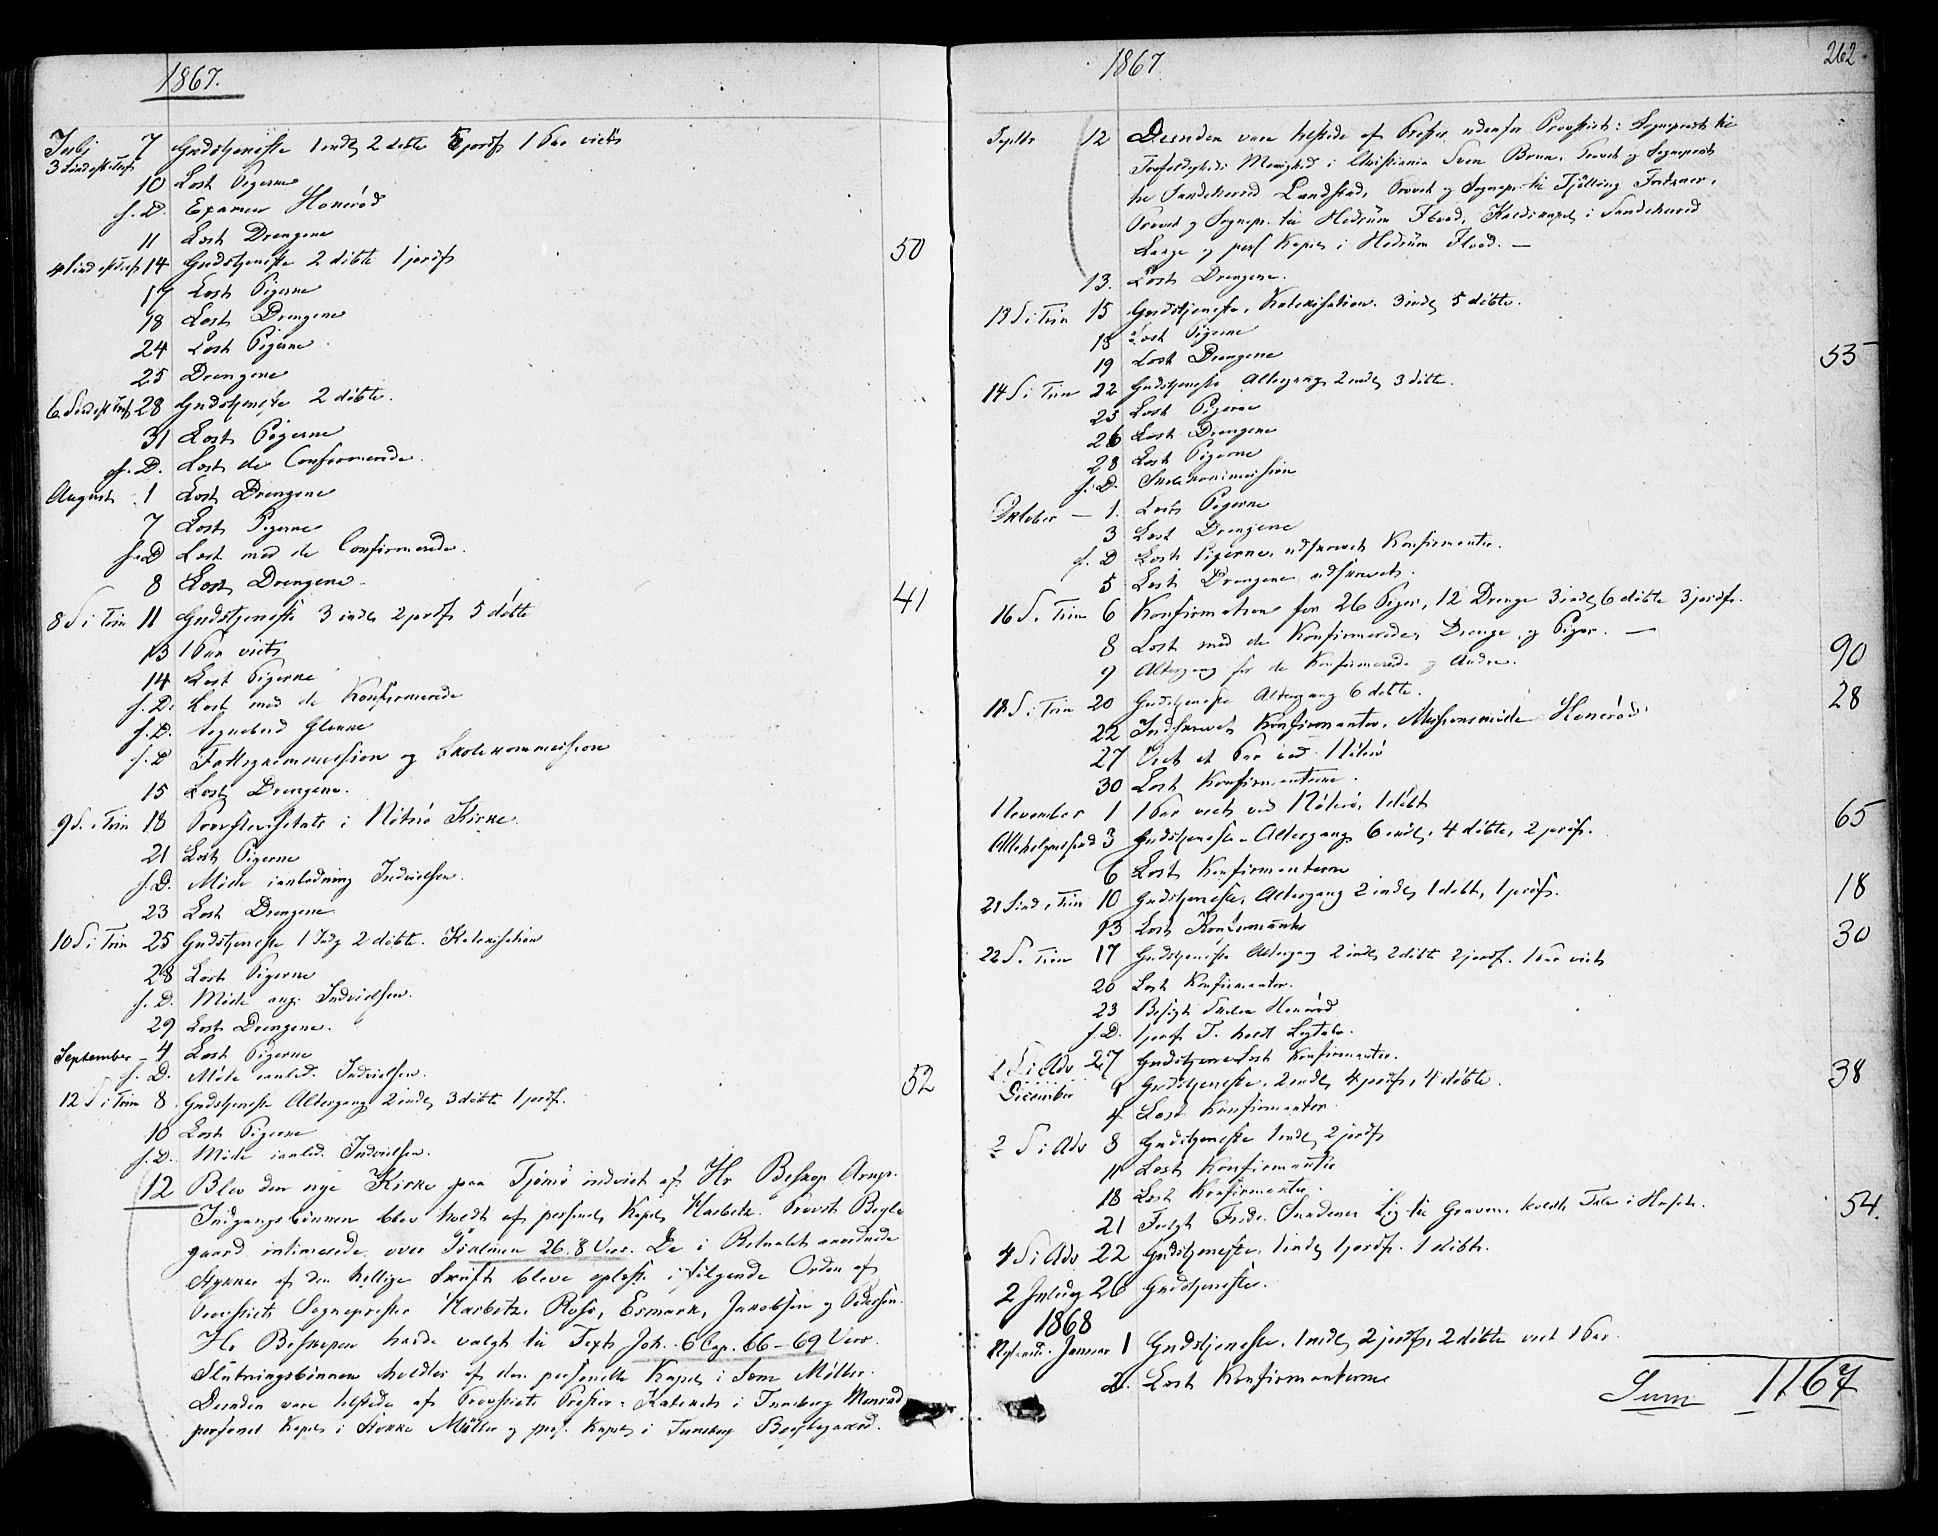 1867.
July 7 Gudstjeneste 1 indl 2 døbte 5 præs 1 Par viet
3 Sønd eft Trin
10 Læst Pigerne
s. D. Examen Hønerød
11 Læst Drengene
4 Sønd eft Trin 14 Gudstjeneste 2 døbte 1 præs 50
17 Læst Pigerne
18 Læst Drengene
24 Læst Pigerne
25 Drengene
6 Sønd eft Trin 28 Gudstjeneste 2 døbte.
31 Læst Pigerne
s. D. Læst de Confirmerede.
August 1 Læst Drengene
7 Læst Pigerne
s. D Læst med de Confirmerede.
8 Læst Drengene. 41
8 S i Trin 11 Gudstjeneste 3 indl 2 præs 5 døbte
13 1 Par viet
14 Læst Pigerne
s. D. Læst med de Konfirmerede
s. D. Sognebud Glenne
s. D Fattigkommission og Skolekommission
15 Læst Drengene.
9 S. i Trin 18 Provstevisitats i Nøterø Kirke.
21 Læst Pigerne
s. D. Møde i anledning Indvielsen.
23 Læst Drengene
10 S i Trin 25 Gudstjeneste 1 Indl 2 døbte. Katekisation
28 Læst Pigerne
s. D. Møde ang. Indvielsen.
29 Læst Drengene.
September - 4 Læst Pigerne
s. D. Møde i anled. Indvielsen. 52
12 S i Trin 8 Gudstjeneste Altergang 2 indl 3 døbte 1 præs.
10 Læst Pigerne
s. D. Møde i anled. Indvielsen.
12 Blev den nye Kirke paa Tjømø indviet af Hr Biskop Arup.
Indgangsbønnen blev holdt af personel Kapel Harbitz. Provst Bugle
gaard intimerede over Psalmen 26. 8 Vers. De i Ritualet anordnede
Stykker af den hellige Skrift bleve oplæste i følgende Orden af
Provstiets Sogneprester Harbitz, Ross, Esmark, Jakobsen og Pedersen.
Hr Biskopen havde valgt til Text Joh. 6 Cap. 66-69 Vers.
Slutningsbønnen holdtes af den personelle Kapel i Sem Møller.
Desuden vare tilstede af Provstiets Prester: Katekets i Tunsberg Monrad
personel Kapel i Stokke Møller og pers. Kapel i Tunsberg
1867 262.
Septbr 12 Desuden vare tilstede af Prester udenfor Provstiet: Sogneprest til
Trefoldigheds Menighed i Christiania Sven Brun, Provst og Sogneprest
til Sandeherred Landstad, Provst og Sognepr. til Tjølling Fritzner,
Provst og Sognepr. til Hedrum Flood, Residerkapel i Sandeherred
Lange og pers Kapel i Hedrum Flood. —
13. Læst Drengene.
13 S i Trin 15 Gudstjeneste, Katekisation. 3 indl 5 døbte.
18 Læst Pigerne
19 Læst Drengene 55
14 S i Trin 22 Gudstjeneste Altergang 2 indl 3 døbte.
25 Læst Pigerne
26 Læst Drengene
28 Læst Pigerne
s. D. Skolekommission
Oktober — 1. Læst Pigerne
3 Læst Drengene
s. D Læst Pigerne, udskrevet Konfirmanter.
5 Læst Drengene udskrevet.
16 S. Trin 6 Konfirmation for 26 Piger, 12 Drenge 3 indl 6 døbte 3 præs.
8 Læst med de Konfirmerede, Drenge og Piger. —
9 Altergang for de Konfirmerede og Andre. 90
18 S i Trin 20 Gudstjeneste Altergang 6 døbte. 28
22 Indskrevet Konfirmanter. Missionsmøde Hønerød
27 Viet et Par ved Nøterø
30 Læst Konfirmanterne.
November 1 1 Par viet ved Nøterø, 1 døbt
Allehelgensfest 3 Gudstjeneste Altergang 6 indl, 4 døbte, 2 præs. 65
6 Læst Konfirmanterne
21 Sønd i Trin 10 Gudstjeneste, Altergang 2 indl 1 døbt, 1 præs. 18
13 Læst Konfirmanter
22 S. Trin 17 Gudstjeneste Altergang 2 indl 2 døbte 2 præs. 1 Par viet 30
20 Læst Konfirmanter.
23 Besøgt Skolen Hønerød
s. D. 1 præs T. holdt Ligtale.
27 Læst Konfirmanter.
1 S i Adv
December 1 Gudstjeneste, 2 indl 4 præs, 4 døbte. 38
4 Læst Konfirmanter
2 S i Adv 8 Gudstjeneste 1 indl 2 præs
11 Læst Konfirmanter
18 Læst Konfirmanter.
21 Fulgt Lig til Graven, holdt Tale i Huset. 54.
4 S i Adv 22 Gudstjeneste, 1 indl 1 præs. 1 døbt.
2 Juledag 26 Gudstjeneste.
1868
Nytaarsd. Januar 1 Gudstjeneste, 1 indl 2 præs, 2 døbte viet 1 Par.
2. Læst Konfirmanterne
Sum 1167